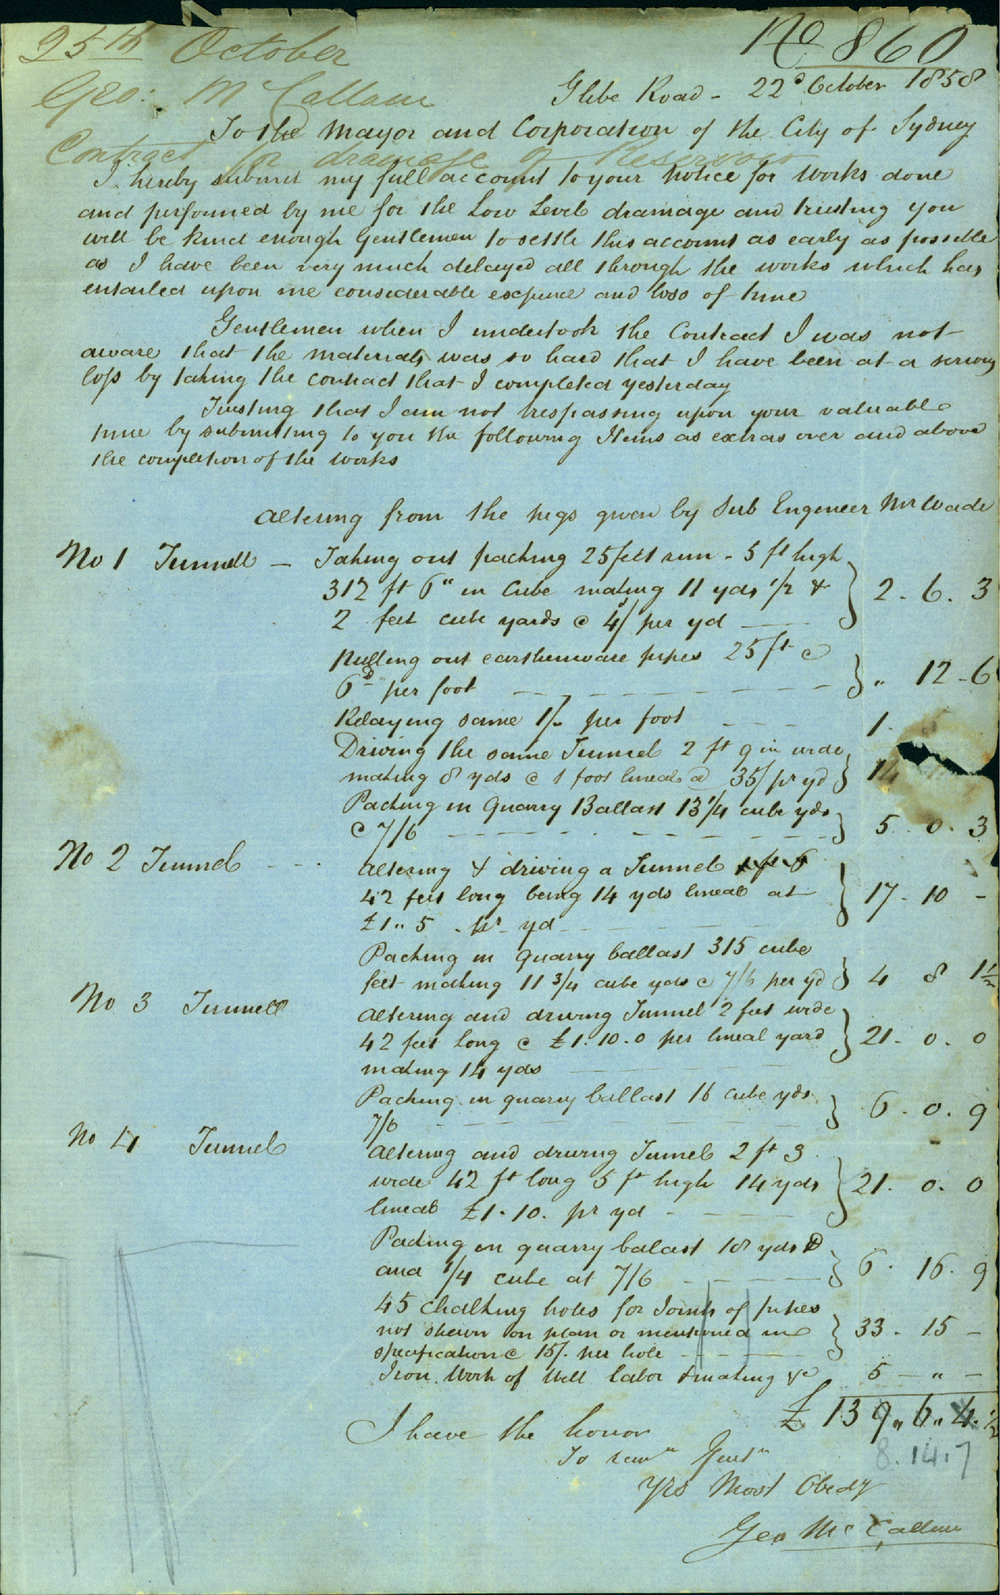 25th October
No 860
Geo: McCallum
Glebe Road - 22d October 1858
To the Mayor and Corporation of the City of Sydney
Contract for drainage of Reservoir
I hereby submit my full account to your notice for works done
and performed by me for the Low Level drainage and trusting you
will be kind enough Gentlemen to settle this account as early as possible
as I have been very much delayed all through the works which has
entailed upon me considerable expence and loss of time
Gentlemen when I undertook the Contract I was not
aware that the materials was so hard that I have been at a serious
loss by taking the contract that I completed yesterday
Trusting that I am not trespassing upon your valuable
time by submitting to you the following Items as extras over and above
the completion of the works
altering from the pegs given by Sub Engineer Mr Wade
No 1 Tunnell — Taking out packing 25 feet run - 5 ft high
312 ft 6" in Cube making 11 yds 1/2 & 2. 6. 3
2 feet cube yards @ 4/ per yd
Pulling out earthenware pipes 25 ft @
6d per foot " 12 - 6
Relaying same 1/- per foot 1.
Driving the same Tunnel 2 ft 9 in wide
making 8 yds @ 1 foot lineal @ 35/ pr yd 14
Packing in Quarry Ballast 13 1/4 cube yds
@ 7/6 5. 0. 3
No 2 Tunnel altering & driving a Tunnel
42 feet long being 14 yds lineal at 17. 10 -
£1.. 5 . pr yd
Packing in quarry ballast 315 cube
feet making 11 3/4 cube yds @ 7/6 per yd 4 8 1 1/2
No 3 Tunnell altering and driving Tunnel 2 feet wide
42 feet long @ £1. 10. 0 per lineal yard 21. 0. 0
making 14 yds
Packing in quarry ballast 16 cube yds
7/6 6. 0. 9
No 4 Tunnel altering and driving Tunnel 2 ft 3
wide 42 ft long 5 ft high 14 yds 21. 0. 0
lineal £1. 10. pr yd
Packing in quarry balast 18 yds
and 1/4 cube at 7/6 6. 16. 9
45 Chalking holes for Joints of pipes
not shewn on plan or mentioned in 33. 15 -
specification @ 15/- per hole
Iron Work of Well labor & making &c 5 - " -
£ 139,, 6,, 4. 1/2
I have the honor
8. 14. 7
To remn Gentn
Yrs Most Obedt
Geo McCallum